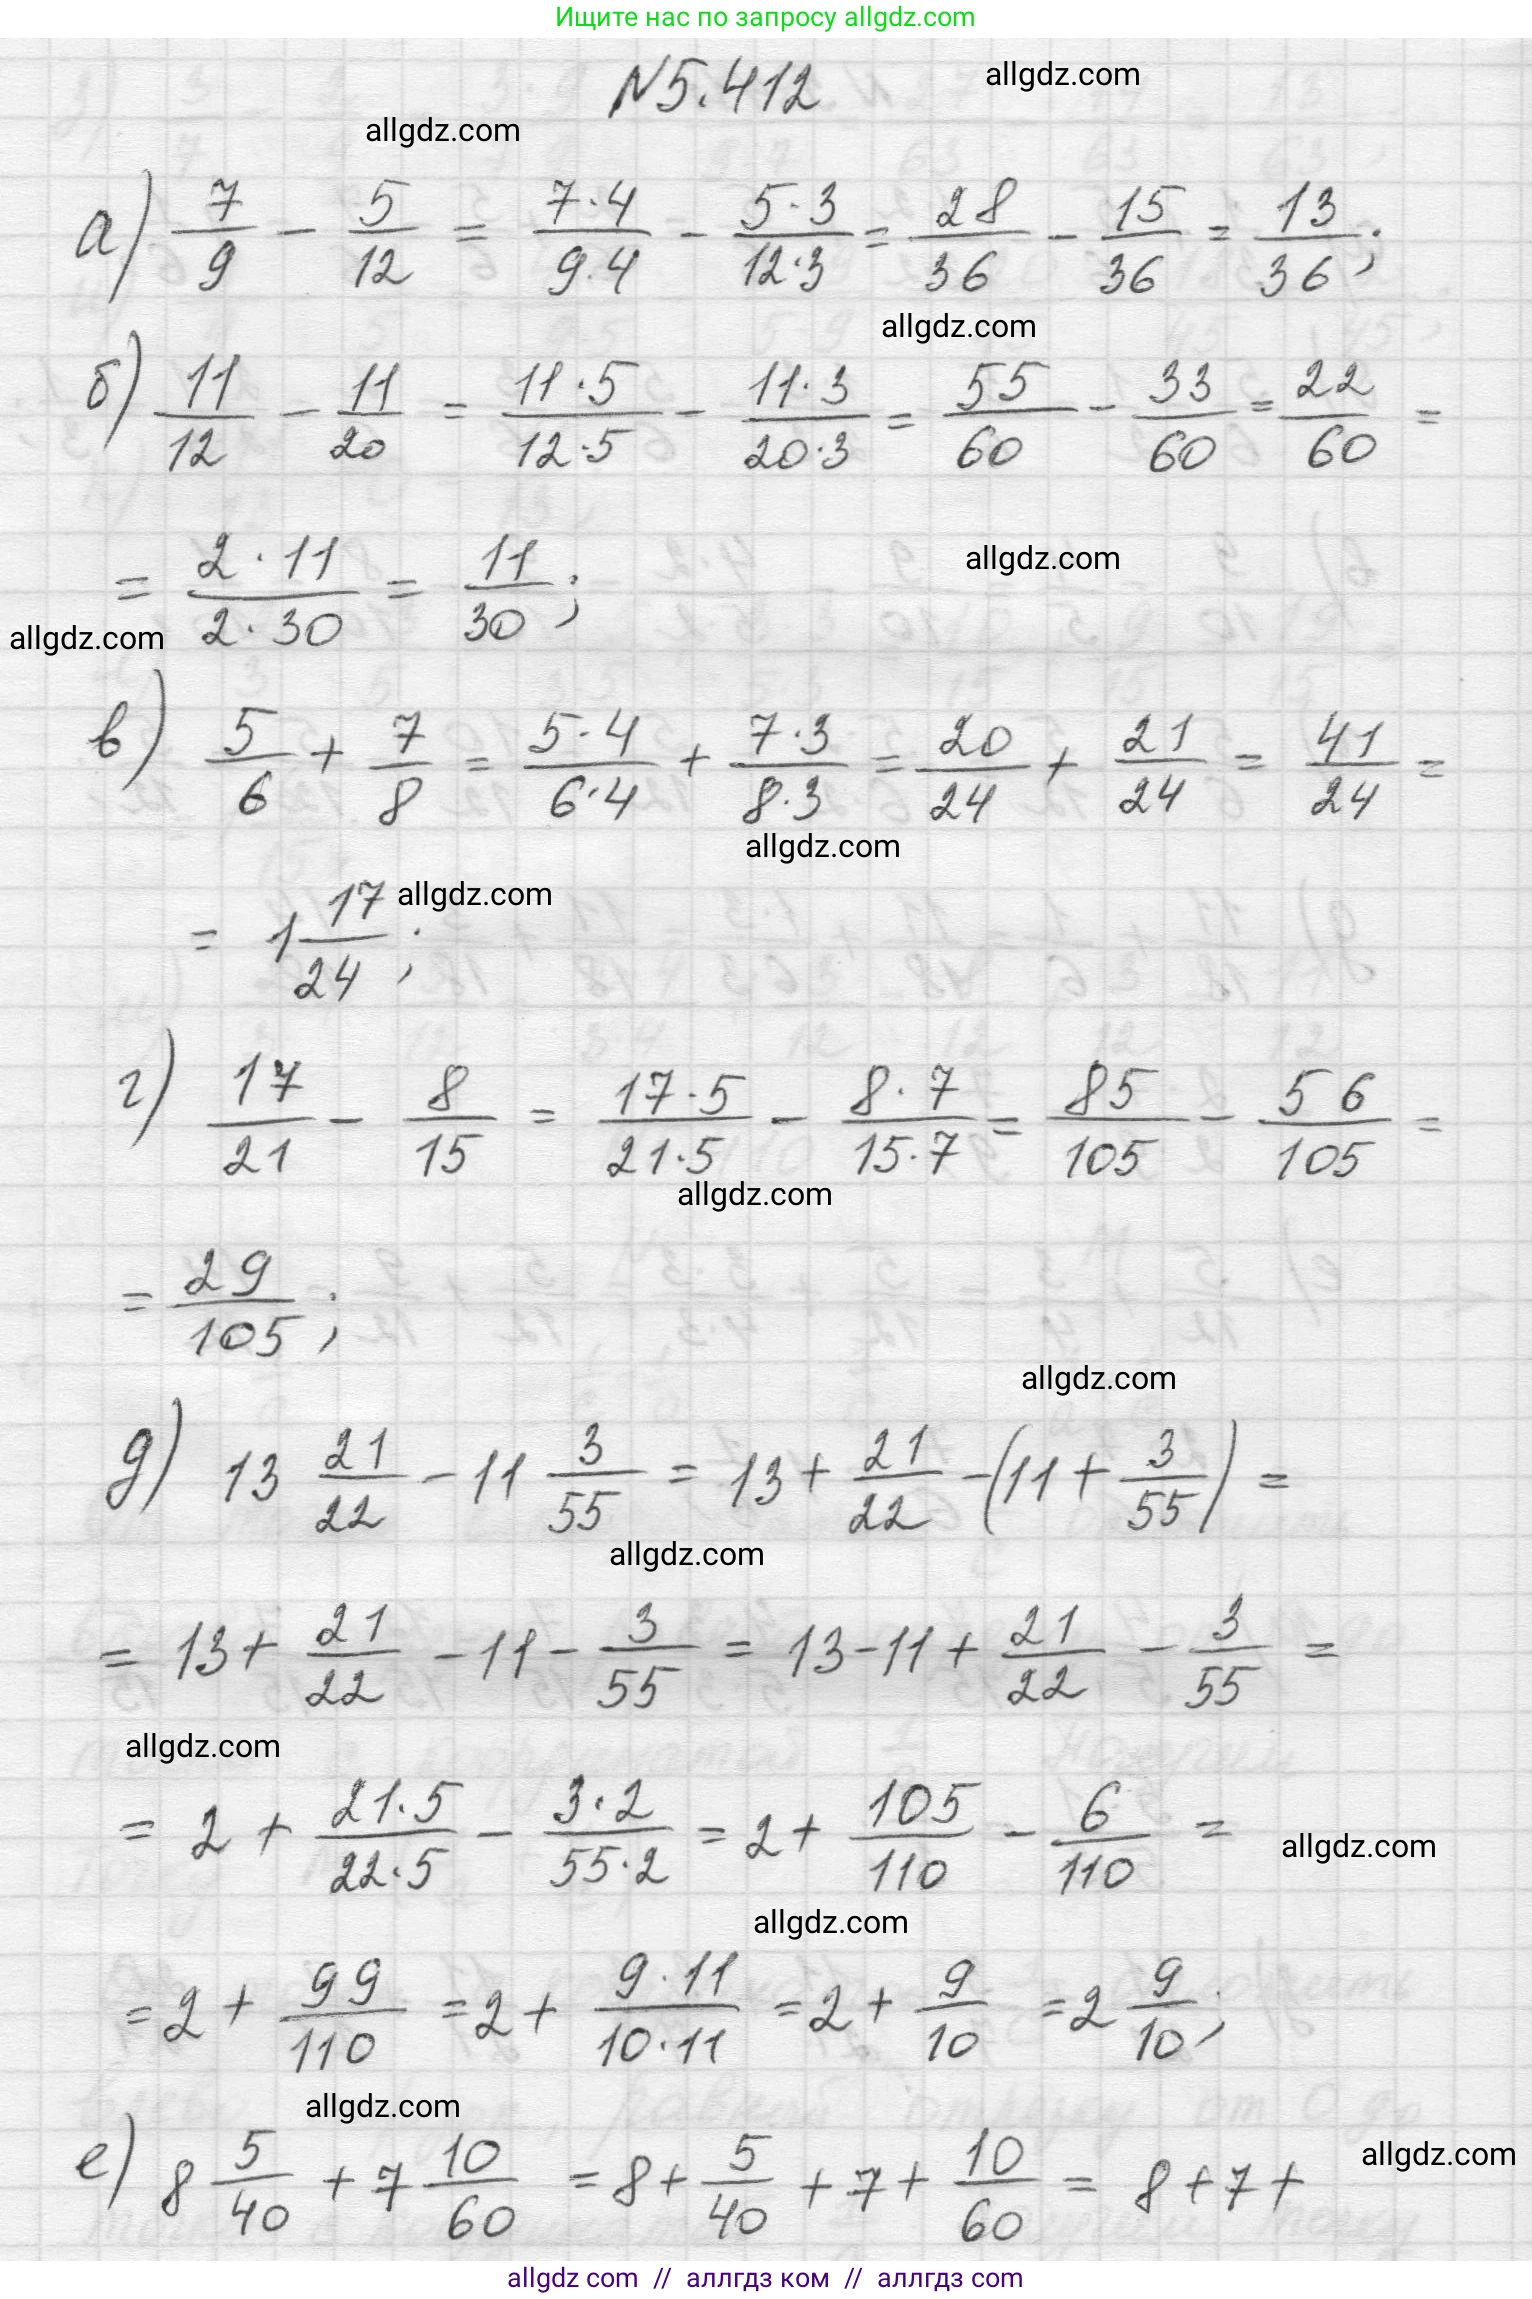 Ищите нас по запросу allgdz.com
N5.412
allgdz.com
allgdz.com
а) 7/9 - 5/12 = 7·4/9·4 - 5·3/12·3 = 28/36 - 15/36 = 13/36;
allgdz.com
б) 11/12 - 11/20 = 11·5/12·5 - 11·3/20·3 = 55/60 - 33/60 = 22/60 =
= 2·11/2·30 = 11/30;
allgdz.com
allgdz.com
в) 5/6 + 7/8 = 5·4/6·4 + 7·3/8·3 = 20/24 + 21/24 = 41/24 =
allgdz.com
= 1 17/24;
allgdz.com
г) 17/21 - 8/15 = 17·5/21·5 - 8·7/15·7 = 85/105 - 56/105 =
allgdz.com
= 29/105;
allgdz.com
д) 13 21/22 - 11 3/55 = 13 + 21/22 - (11 + 3/55) =
allgdz.com
= 13 + 21/22 - 11 - 3/55 = 13 - 11 + 21/22 - 3/55 =
allgdz.com
= 2 + 21·5/22·5 - 3·2/55·2 = 2 + 105/110 - 6/110 =
allgdz.com
allgdz.com
= 2 + 99/110 = 2 + 9·11/10·11 = 2 + 9/10 = 2 9/10;
allgdz.com
е) 8 5/40 + 7 10/60 = 8 + 5/40 + 7 + 10/60 = 8 + 7 +
allgdz.com
allgdz com // аллгдз ком // аллгдз com